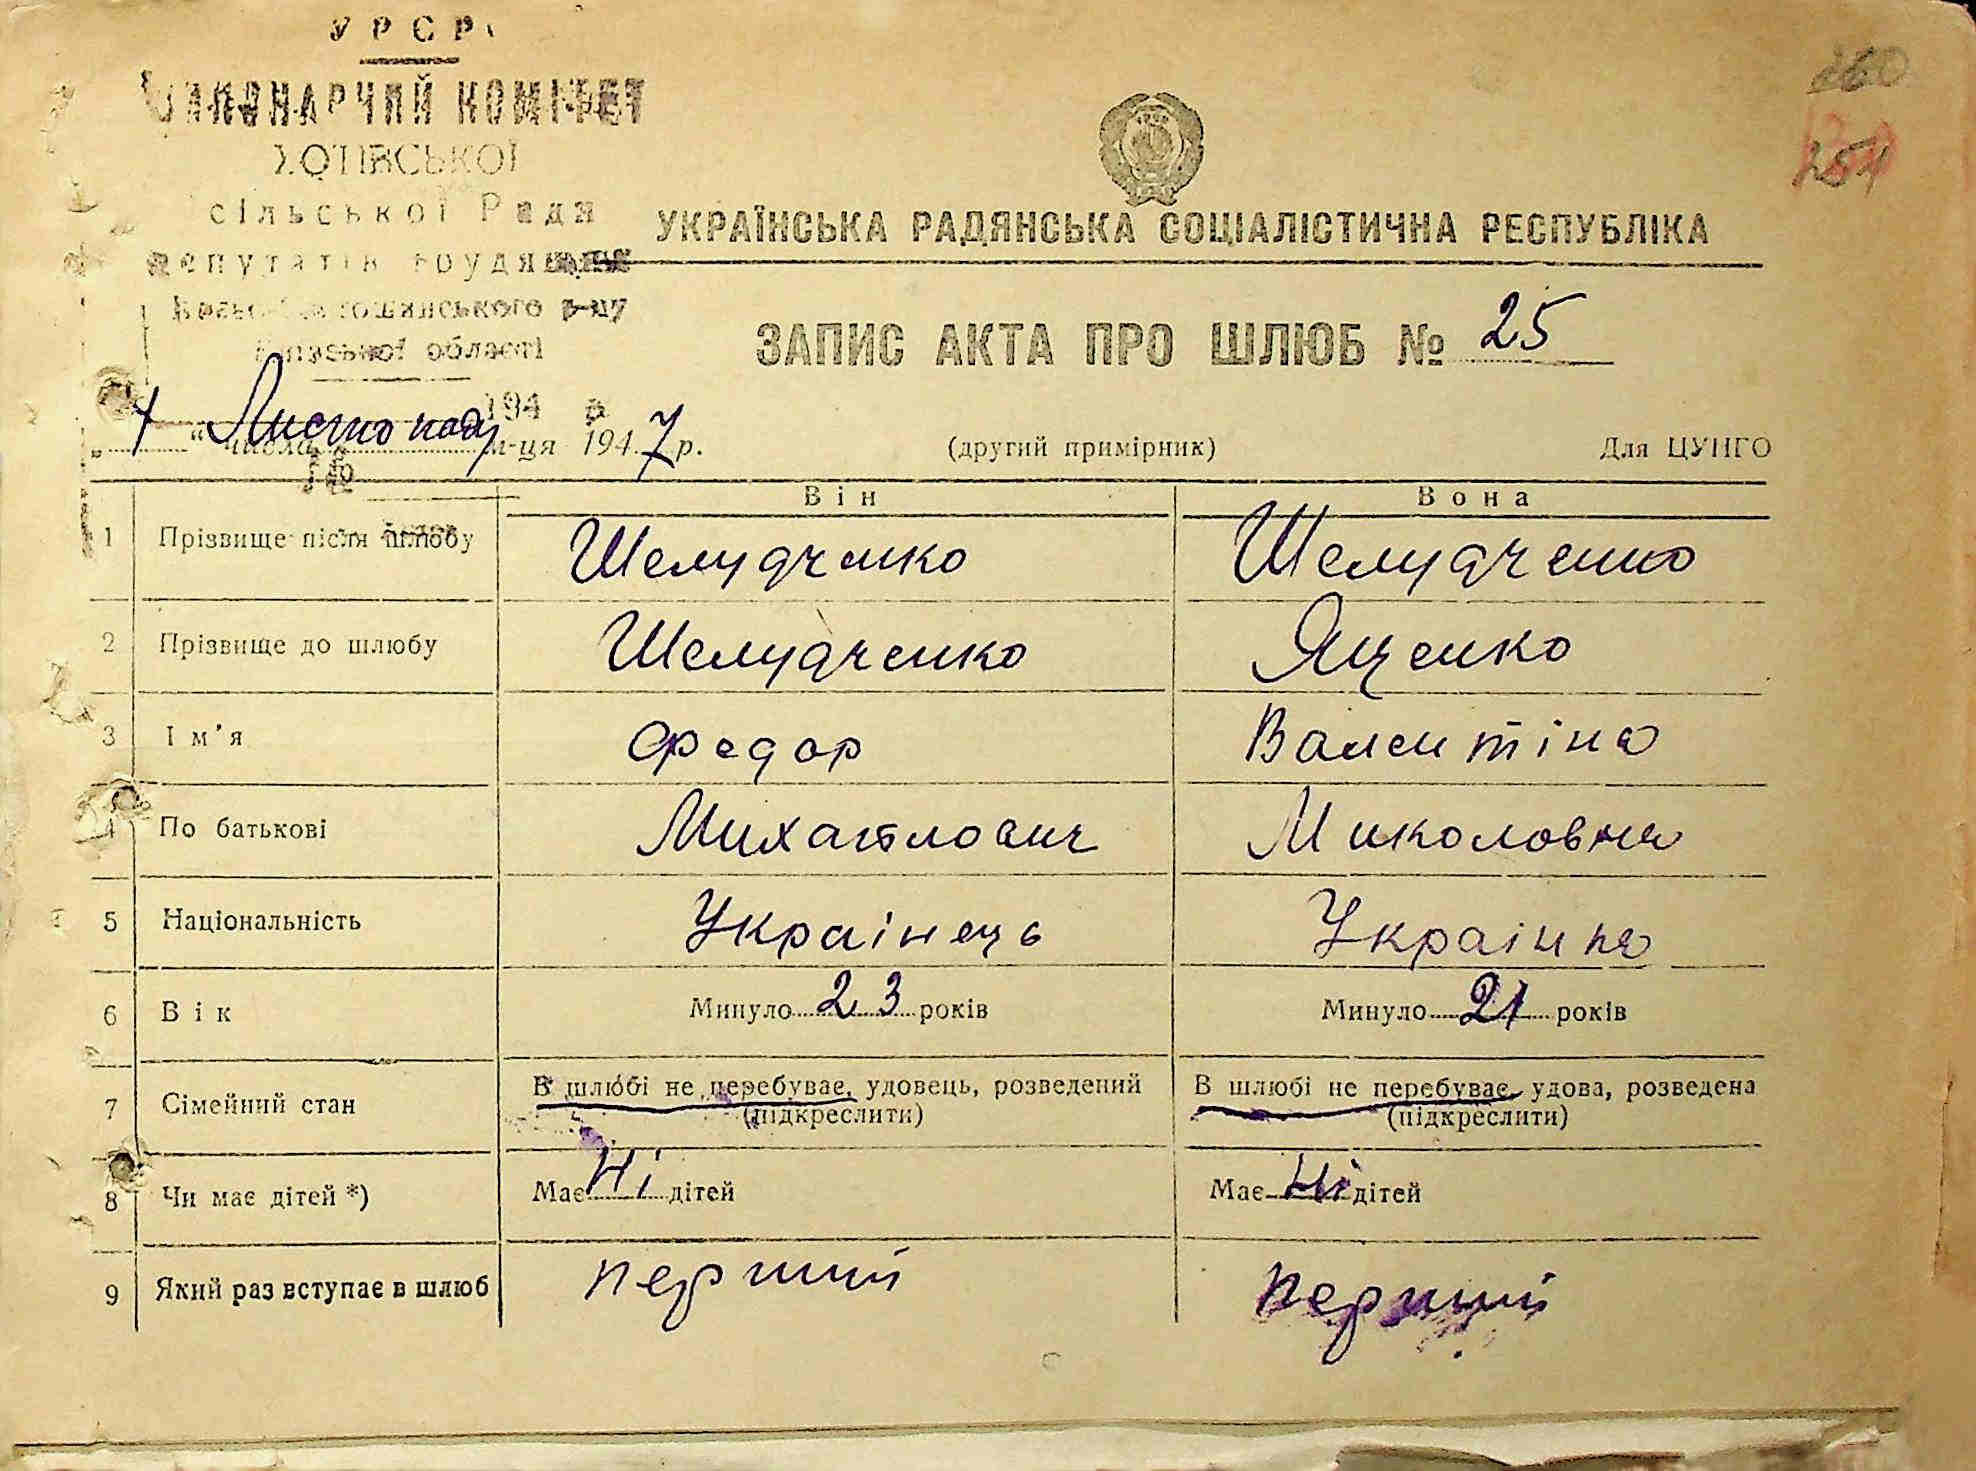 УРСР
ВИКОНАВЧИЙ КОМІТЕТ
ХОТІВСЬКОЇ
сільської Ради
депутатів трудящих
р-ну
області
260
254
УКРАЇНСЬКА РАДЯНСЬКА СОЦІАЛІСТИЧНА РЕСПУБЛІКА
ЗАПИС АКТА ПРО ШЛЮБ № 25
194 р.
„ “ числа Листопад м-ця 1947 р.
(другий примірник)
Для ЦУНГО
Він Вона
1 Прізвище після шлюбу Шелудченко Шелудченко
2 Прізвище до шлюбу Шелудченко Яценко
3 Ім’я Федор Валентіна
4 По батькові Михайлович Миколовна
5 Національність Украінець Украінка
6 Вік Минуло 23 років Минуло 21 років
7 Сімейний стан В шлюбі не перебуває, удовець, розведений В шлюбі не перебуває, удова, розведена
(підкреслити) (підкреслити)
8 Чи має дітей *) Має Ні дітей Має Ні дітей
9 Який раз вступає в шлюб перший перший